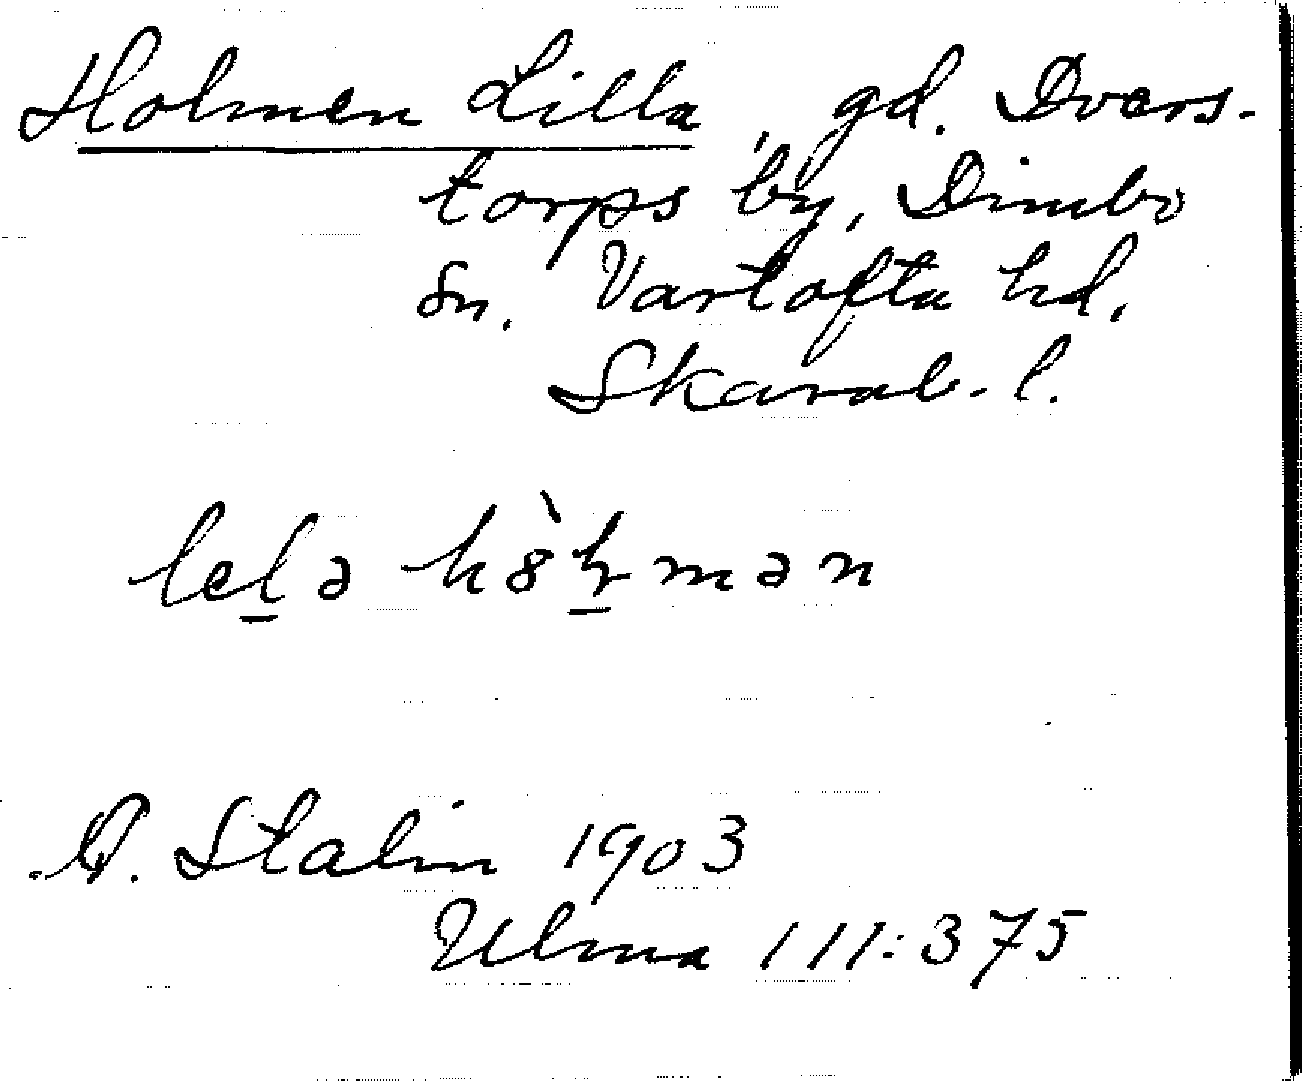 Holmen Lilla, gd. Dvers-
torps by, Dimbo
sn. Vartofta hd.
Skarab. l.
lelə
A. Stalin 1903
Ulma 111:375